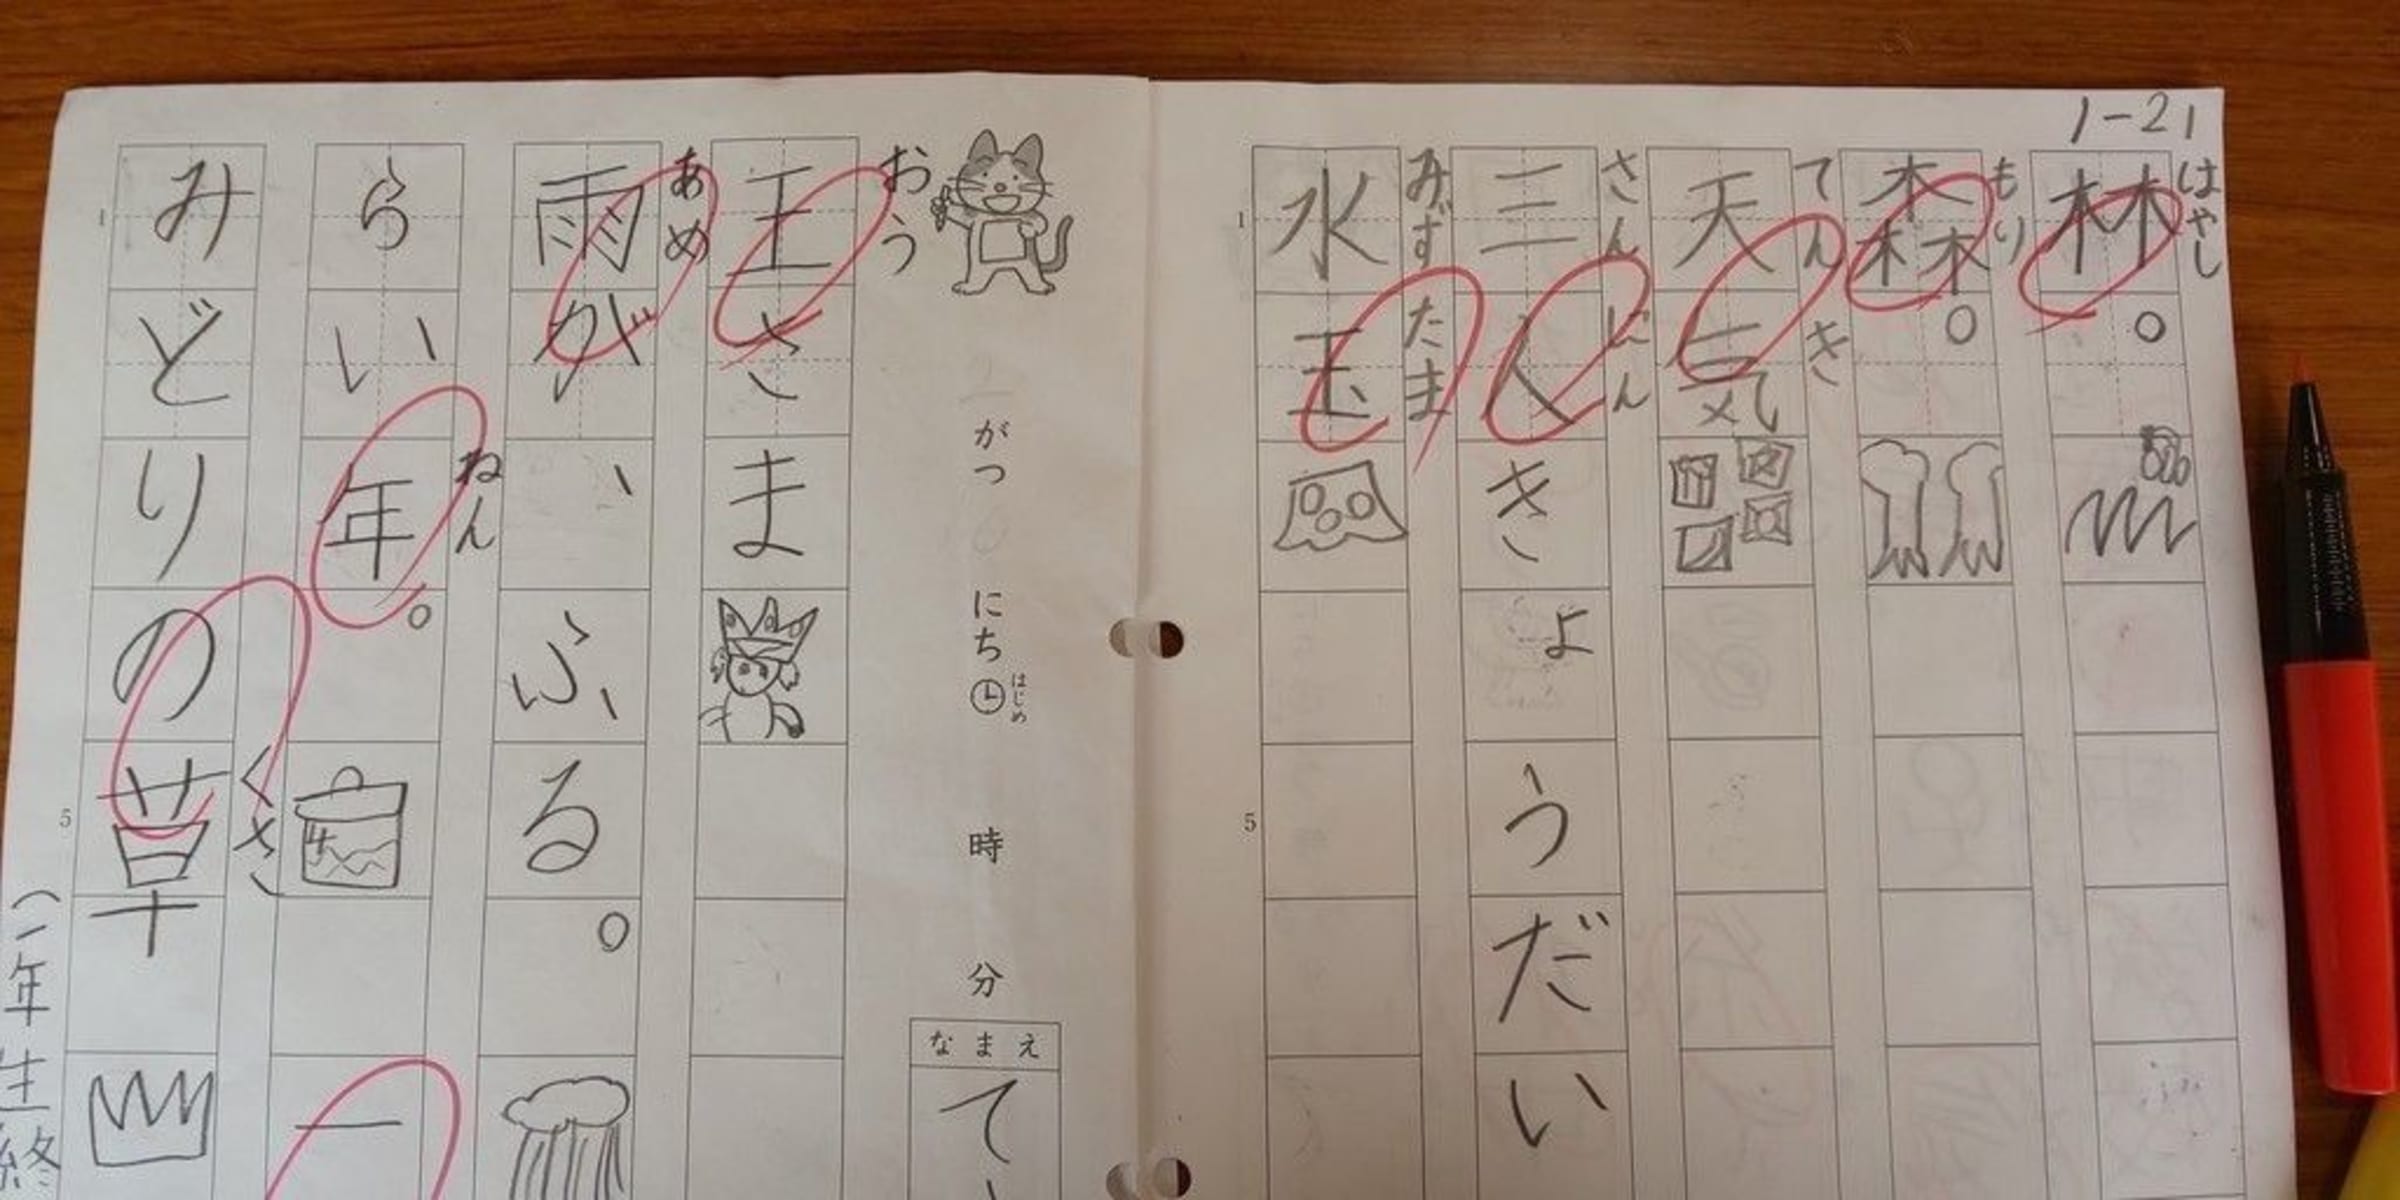 1-21
はやし
林。
もり
森。
てんき
天気
さんにん
三人きょうだい
みずたま
水玉
1
5
がつ にち はじめ 時 分
なまえ
て
おう
王さま
あめ
雨が、ふる。
ねん
らい年。
一
くさ
みどりの草
1
5